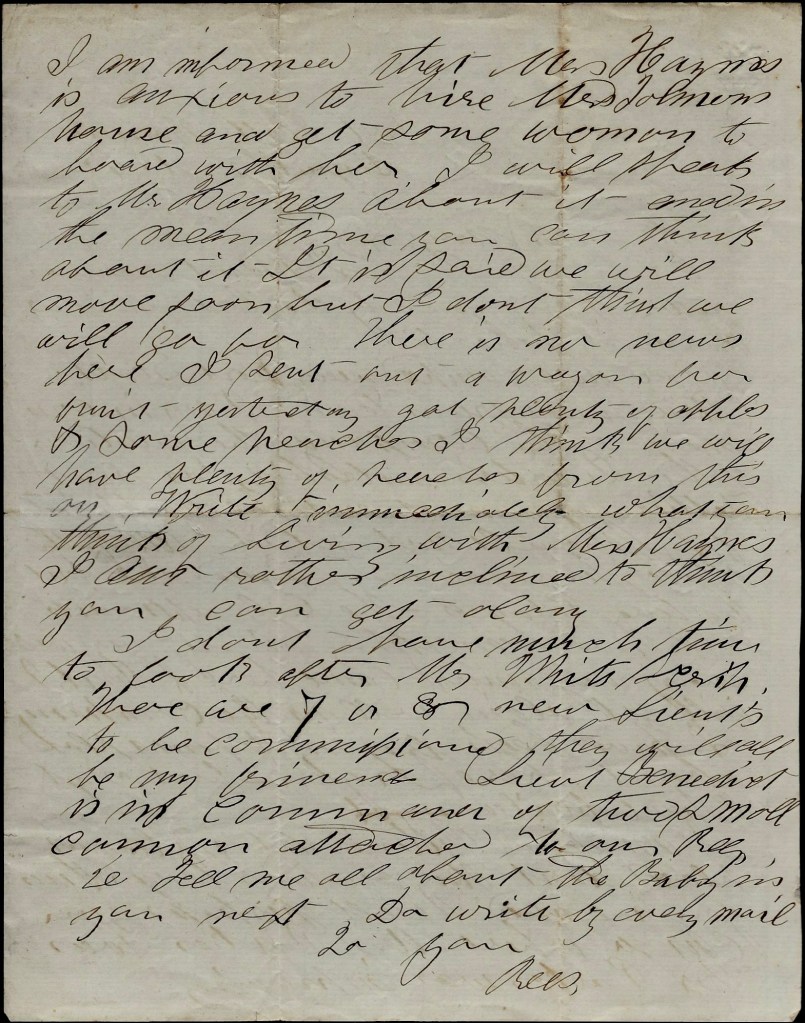 I am informed that Mrs Haynes
is anxious to hire Mrs Tolmons
house and get some woman to
board with her I will speak
to Mr Haynes about it and in
the mean time you can think
about it It is said we will
move soon but I dont think we
will go far There is no news
here I sent out a wagon for
fruit yesterday got plenty of apples
& some peaches I think we will
have plenty of peaches from this
on. Write immediately what you
think of living with Mrs Haynes
I am rather inclined to think
you can get along
I dont have much time
to look after My White
There are 7 or 8 new Lieuts
to be commissioned they will all
be my friends Lieut Benedict
is in command of two small
cannon attached to our Reg
Tell me all about the Baby in
your next Do write by every mail
To your
Rees,